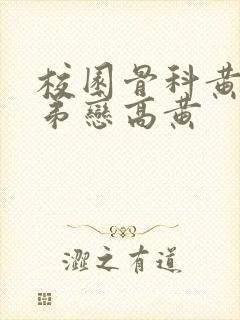 校園骨科黃
弟戀高黃
澀之有道